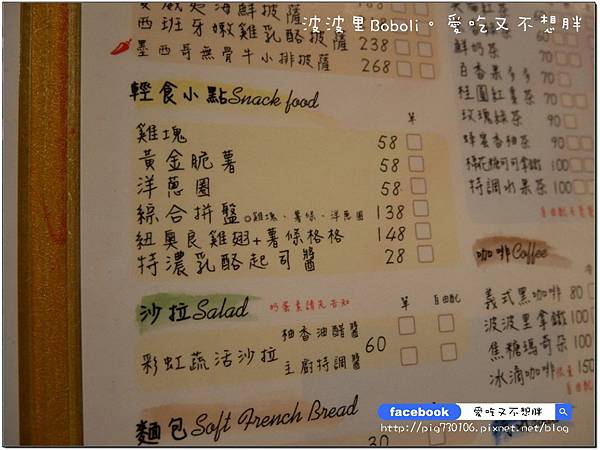 波波里Boboli。愛吃又不想胖
西班牙嫩雞乳酪披薩 238
墨西哥無骨牛小排披薩 268
輕食小點Snack food
單
雞塊 58
黃金脆薯 58
洋蔥圈 58
綜合拼盤◎雞塊、薯條、洋蔥圈 138
紐奧良雞翅+薯條格格 148
特濃乳酪起司醬 28
沙拉Salad 奶蛋素請先告知 單 自由配
彩虹蔬活沙拉 柚香油醋醬 60
主廚特調醬
麵包Soft French Bread
30
60
鮮奶茶 70
百香果多多 70
桂圓紅棗茶
玫瑰綠茶 90
蜂蜜香柚茶 90
棉花糖可可拿鐵 100
特調水果茶 100
咖啡Coffee
義式黑咖啡 80
波波里拿鐵 100
焦糖瑪奇朵 100
冰滴咖啡限量 150
自由配
facebook 愛吃又不想胖
http://pig770106.pixnet.net/blog